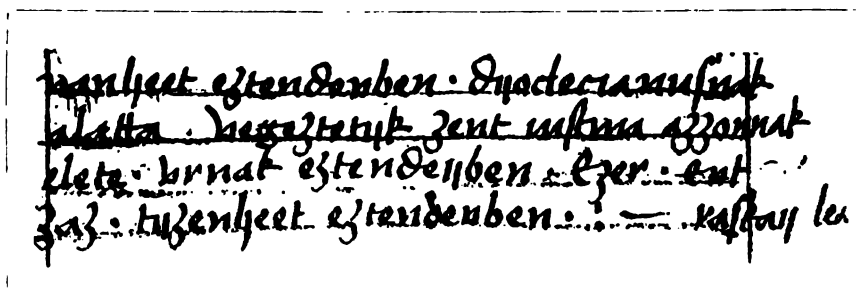 vanheet eztendeuben · dyoclecianusnak
alatta · vegeztetyk zent iustina azzonnak
elete · vrnak eztendeyben · Ezer · ent
zaz · tyzenheet eztendeuben · : — raskay lea